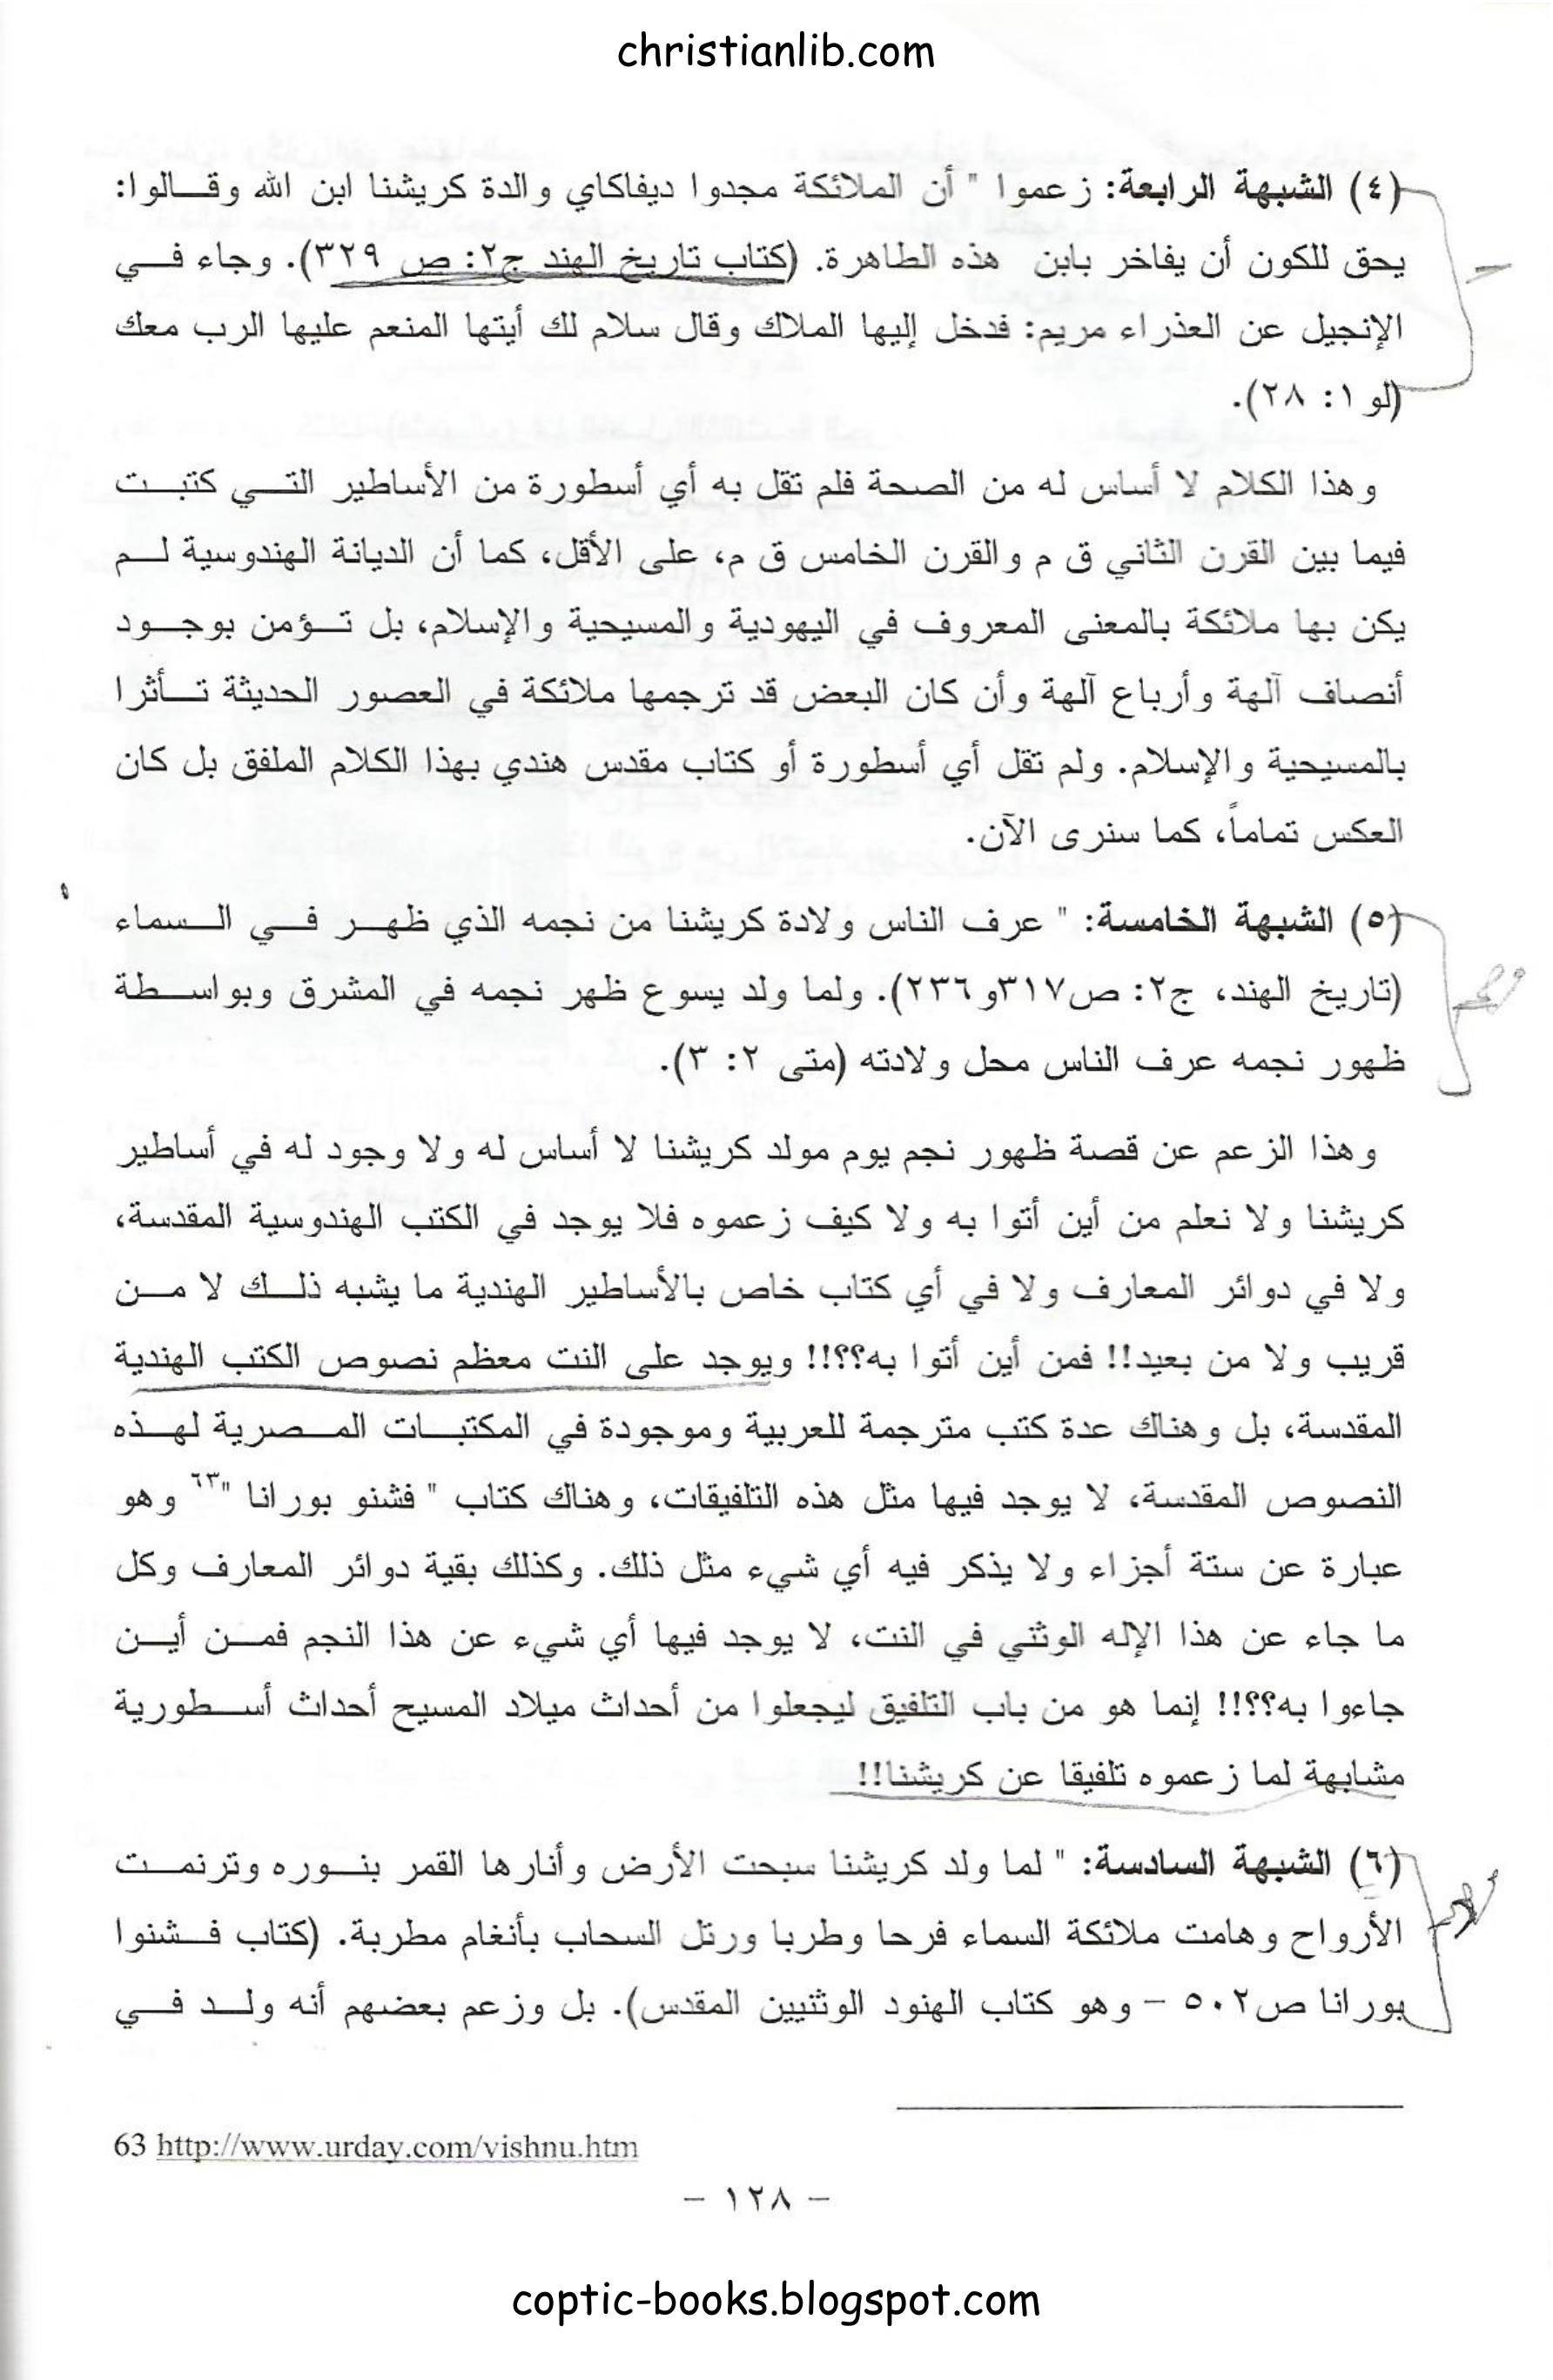 christianlib.com
(٤) الشبهة الرابعة: زعموا " أن الملائكة مجدوا ديفاكاي والدة كريشنا ابن الله وقالوا:
يحق للكون أن يفاخر بابن هذه الطاهرة. (كتاب تاريخ الهند ج٢: ص ٣٢٩). وجاء في
الإنجيل عن العذراء مريم: فدخل إليها الملاك وقال سلام لك أيتها المنعم عليها الرب معك
(لو ١: ٢٨).
وهذا الكلام لا أساس له من الصحة فلم تقل به أي أسطورة من الأساطير التي كتبت
فيما بين القرن الثاني ق م والقرن الخامس ق م، على الأقل، كما أن الديانة الهندوسية لم
يكن بها ملائكة بالمعنى المعروف في اليهودية والمسيحية والإسلام، بل تؤمن بوجود
أنصاف آلهة وأرباع آلهة وأن كان البعض قد ترجمها ملائكة في العصور الحديثة تأثرا
بالمسيحية والإسلام. ولم تقل أي أسطورة أو كتاب مقدس هندي بهذا الكلام الملفق بل كان
العكس تماماً، كما سنرى الآن.
(٥) الشبهة الخامسة: " عرف الناس ولادة كريشنا من نجمه الذي ظهر في السماء
(تاريخ الهند، ج٢: ص٣١٧و٢٣٦). ولما ولد يسوع ظهر نجمه في المشرق وبواسطة
ظهور نجمه عرف الناس محل ولادته (متى ٢: ٣).
وهذا الزعم عن قصة ظهور نجم يوم مولد كريشنا لا أساس له ولا وجود له في أساطير
كريشنا ولا نعلم من أين أتوا به ولا كيف زعموه فلا يوجد في الكتب الهندوسية المقدسة،
ولا في دوائر المعارف ولا في أي كتاب خاص بالأساطير الهندية ما يشبه ذلك لا من
قريب ولا من بعيد!! فمن أين أتوا به؟؟!! ويوجد على النت معظم نصوص الكتب الهندية
المقدسة، بل وهناك عدة كتب مترجمة للعربية وموجودة في المكتبات المصرية لهذه
النصوص المقدسة، لا يوجد فيها مثل هذه التلفيقات، وهناك كتاب " فشنو بورانا "٦٣ وهو
عبارة عن ستة أجزاء ولا يذكر فيه أي شيء مثل ذلك. وكذلك بقية دوائر المعارف وكل
ما جاء عن هذا الإله الوثني في النت، لا يوجد فيها أي شيء عن هذا النجم فمن أين
جاءوا به؟؟!! إنما هو من باب التلفيق ليجعلوا من أحداث ميلاد المسيح أحداث أسطورية
مشابهة لما زعموه تلفيقا عن كريشنا!!
(٦) الشبهة السادسة: " لما ولد كريشنا سبحت الأرض وأنارها القمر بنوره وترنمت
الأرواح وهامت ملائكة السماء فرحا وطربا ورتل السحاب بأنغام مطربة. (كتاب فشنوا
بورانا ص٥٠٢ – وهو كتاب الهنود الوثنيين المقدس). بل وزعم بعضهم أنه ولد في
63 http://www.urday.com/vishnu.htm
– ١٢٨ –
coptic-books.blogspot.com